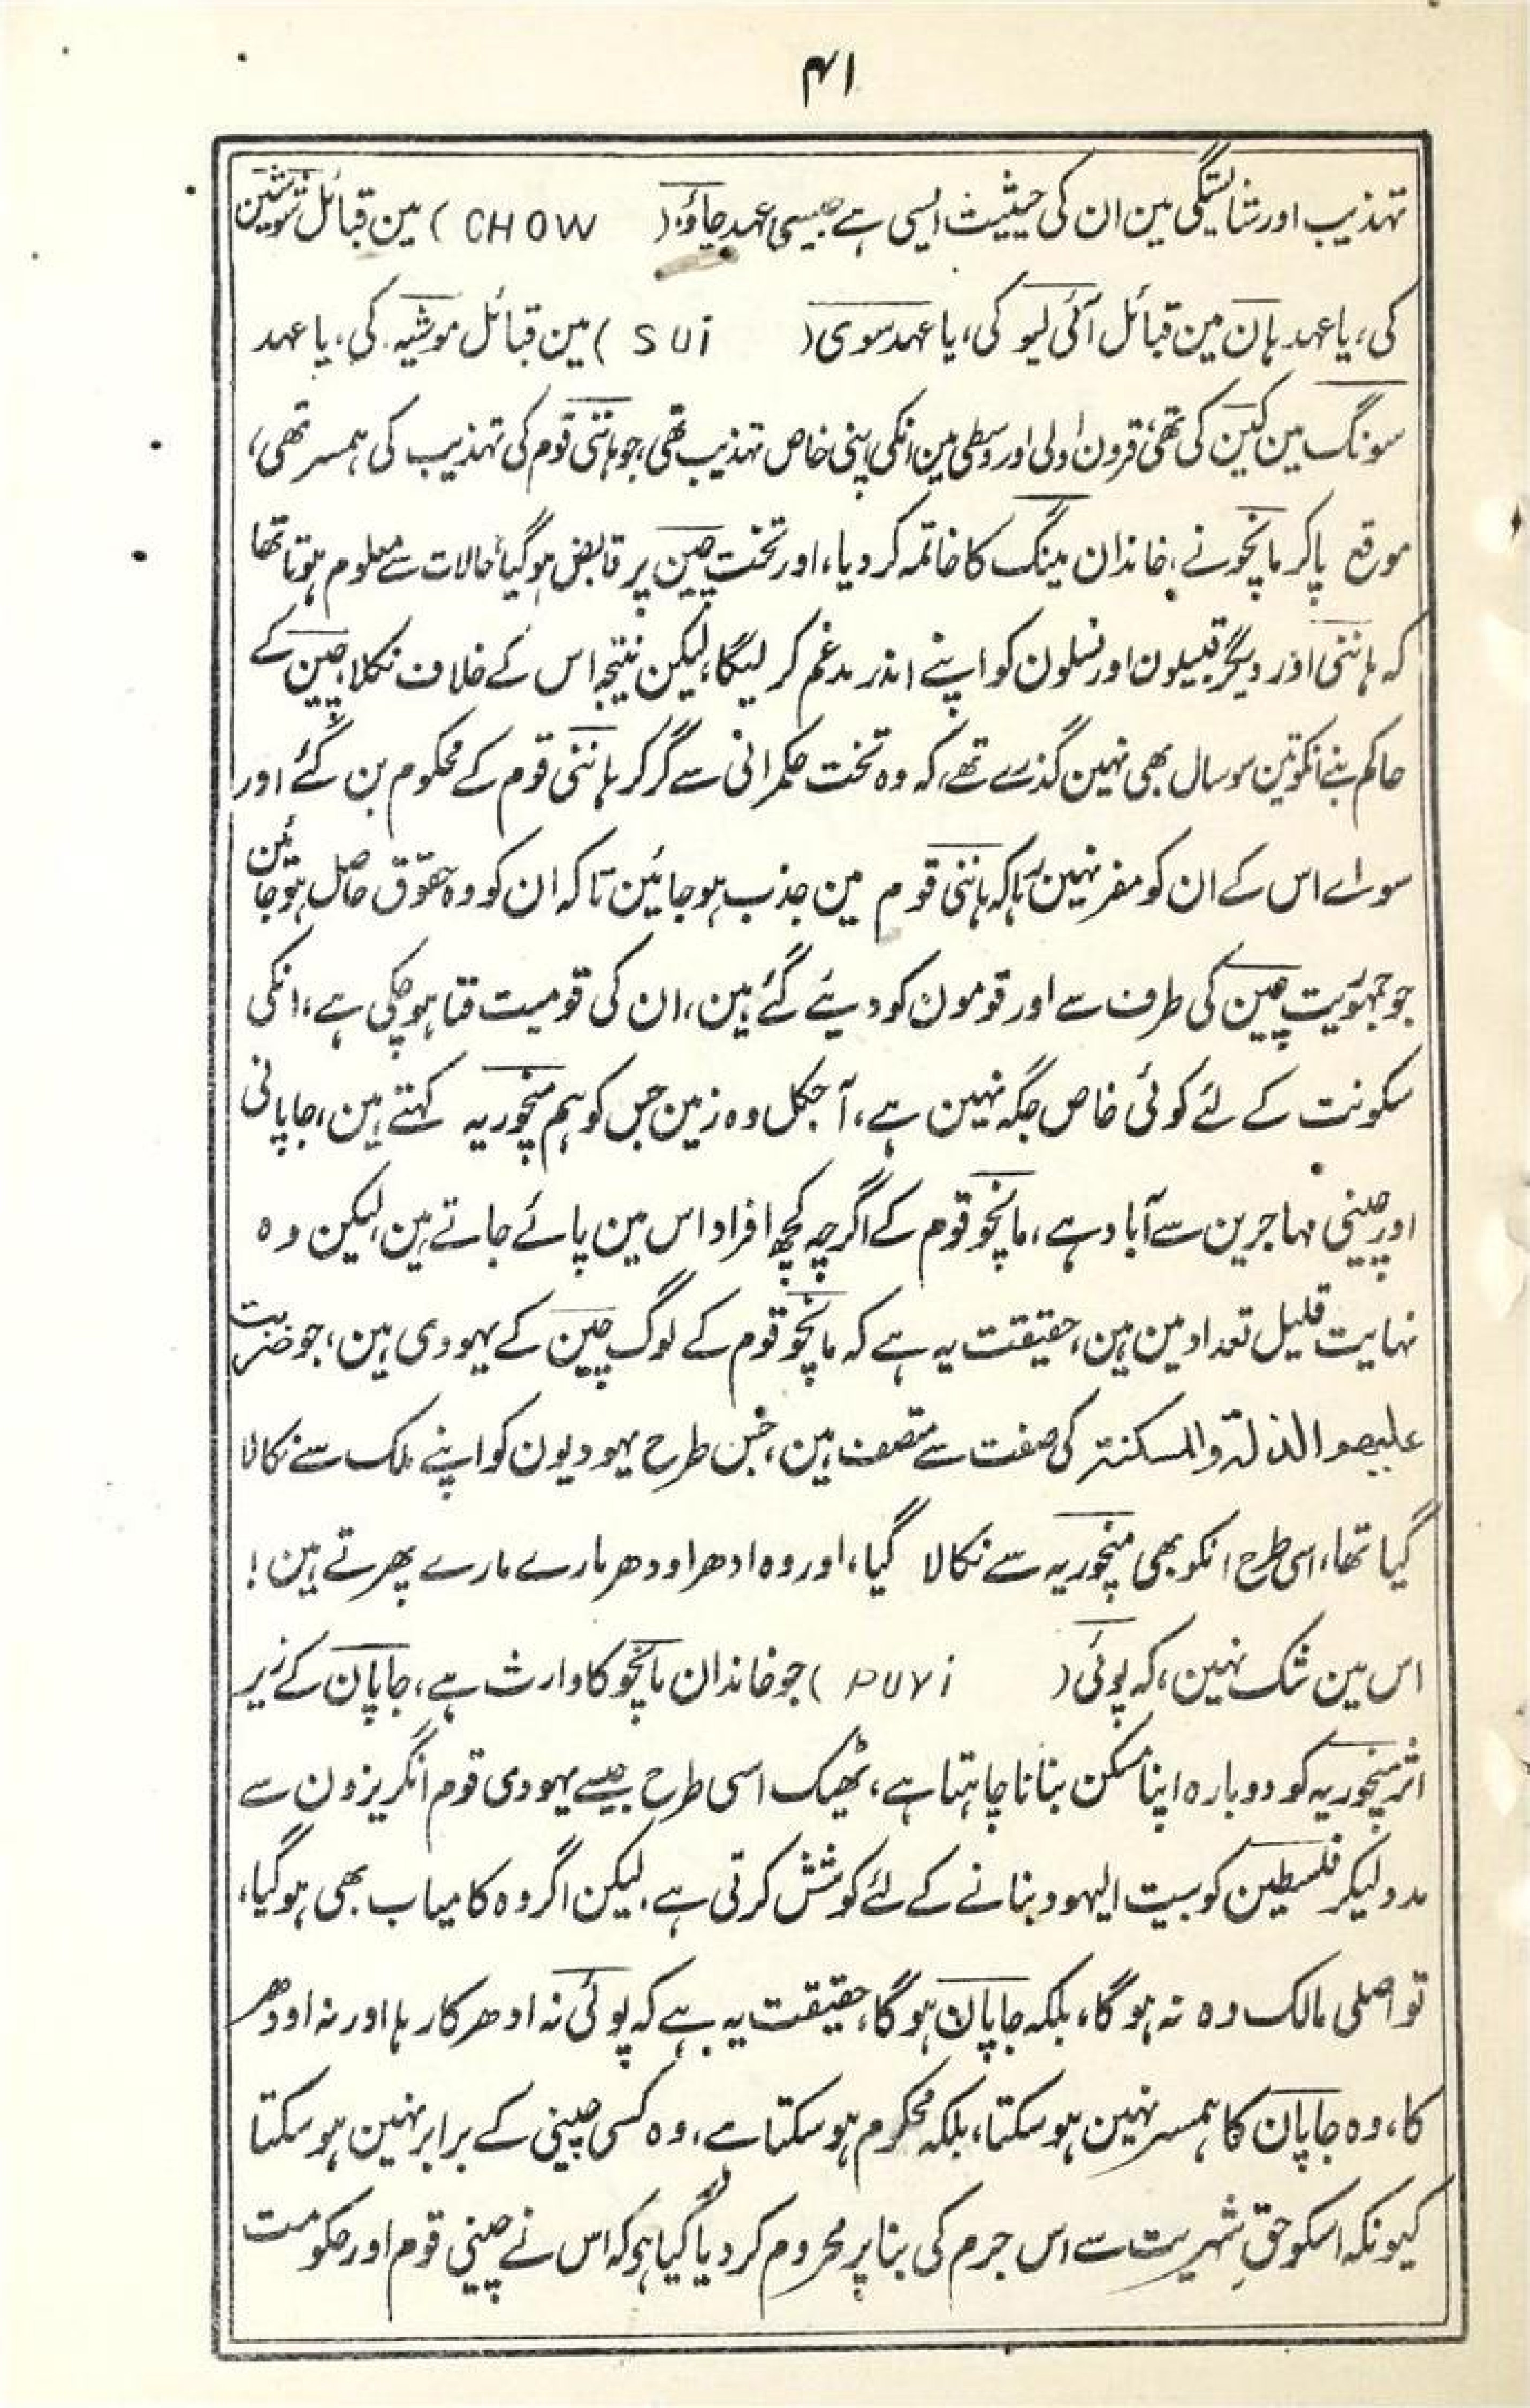 ۴۱
تہذیب اور شایستگی مین ان کی حیثیت ایسی ہے جیسی عہد چاؤ، (CHOW) مین قبائل
کی، یا عہد ہان مین قبائل آئی لیو کی، یا عہد سوی (SUi) مین قبائل موشیہ کی، یا عہد
سونگ مین کین کی تھی، قرون اولی اور وسطی مین انکی اپنی خاص تہذیب تھی، جو ہانتی قوم کی تہذیب کی ہمسر تھی،
موقع پاکر مانچو نے، خاندان مینگ کا خاتمہ کر دیا، اور تخت چین پر قابض ہو گیا، حالات سے معلوم ہوتا تھا
کہ ہانتی اور دیگر قبیلون اور نسلون کو اپنے اندر مدغم کر لیگا، لیکن نتیجہ اس کے خلاف نکلا، چین کے
حاکم بنے انکو تین سو سال بھی نہین گذرے تھے، کہ وہ تخت حکمرانی سے گر کر ہانتی قوم کے محکوم بن گئے اور
سواے اس کے ان کو مفر نہین رہا کہ ہانتی قوم مین جذب ہو جائین تاکہ ان کو وہ حقوق حاصل ہو جائین
جو جمہوریت چین کی طرف سے اور قومون کو دیئے گئے ہین، ان کی قومیت فنا ہو چکی ہے، انکی
سکونت کے لئے کوئی خاص جگہ نہین ہے، آجکل وہ زمین جس کو ہم منچوریہ کہتے ہین، جاپانی
اور چینی مہاجرین سے آباد ہے، مانچو قوم کے اگرچہ کچھ افراد اس مین پائے جاتے ہین، لیکن وہ
نہایت قلیل تعداد مین ہین، حقیقت یہ ہے کہ مانچو قوم کے لوگ چین کے یہودی ہین، جو ضربت
علیہم الذلۃ والمسکنۃ کی صفت سے متصف ہین، جس طرح یہودیون کو اپنے ملک سے نکالا
گیا تھا، اسی طرح انکو بھی منچوریہ سے نکالا گیا، اور وہ ادھر اودھر مارے مارے پھرتے ہین!
اس مین شک نہین، کہ پوئی (PUYi) جو خاندان مانچو کا وارث ہے، جاپان کے زیر
اثر منچوریہ کو دوبارہ اپنا مسکن بنانا چاہتا ہے، ٹھیک اسی طرح جیسے یہودی قوم انگریزون سے
مدد لیکر فلسطین کو بیت الیہود بنانے کے لئے کوشش کرتی ہے، لیکن اگر وہ کامیاب بھی ہو گیا،
تو اصلی مالک وہ نہ ہوگا، بلکہ جاپان ہوگا، حقیقت یہ ہے کہ پوئی نہ ادھر کا رہا اور نہ اودھر
کا، وہ جاپان کا ہمسر نہین ہو سکتا، بلکہ محکوم ہو سکتا ہے، وہ کسی چینی کے برابر نہین ہو سکتا
کیونکہ اسکو حقِ شہریت سے اس جرم کی بنا پر محروم کر دیا گیا ہی کہ اس نے چینی قوم اور حکومت